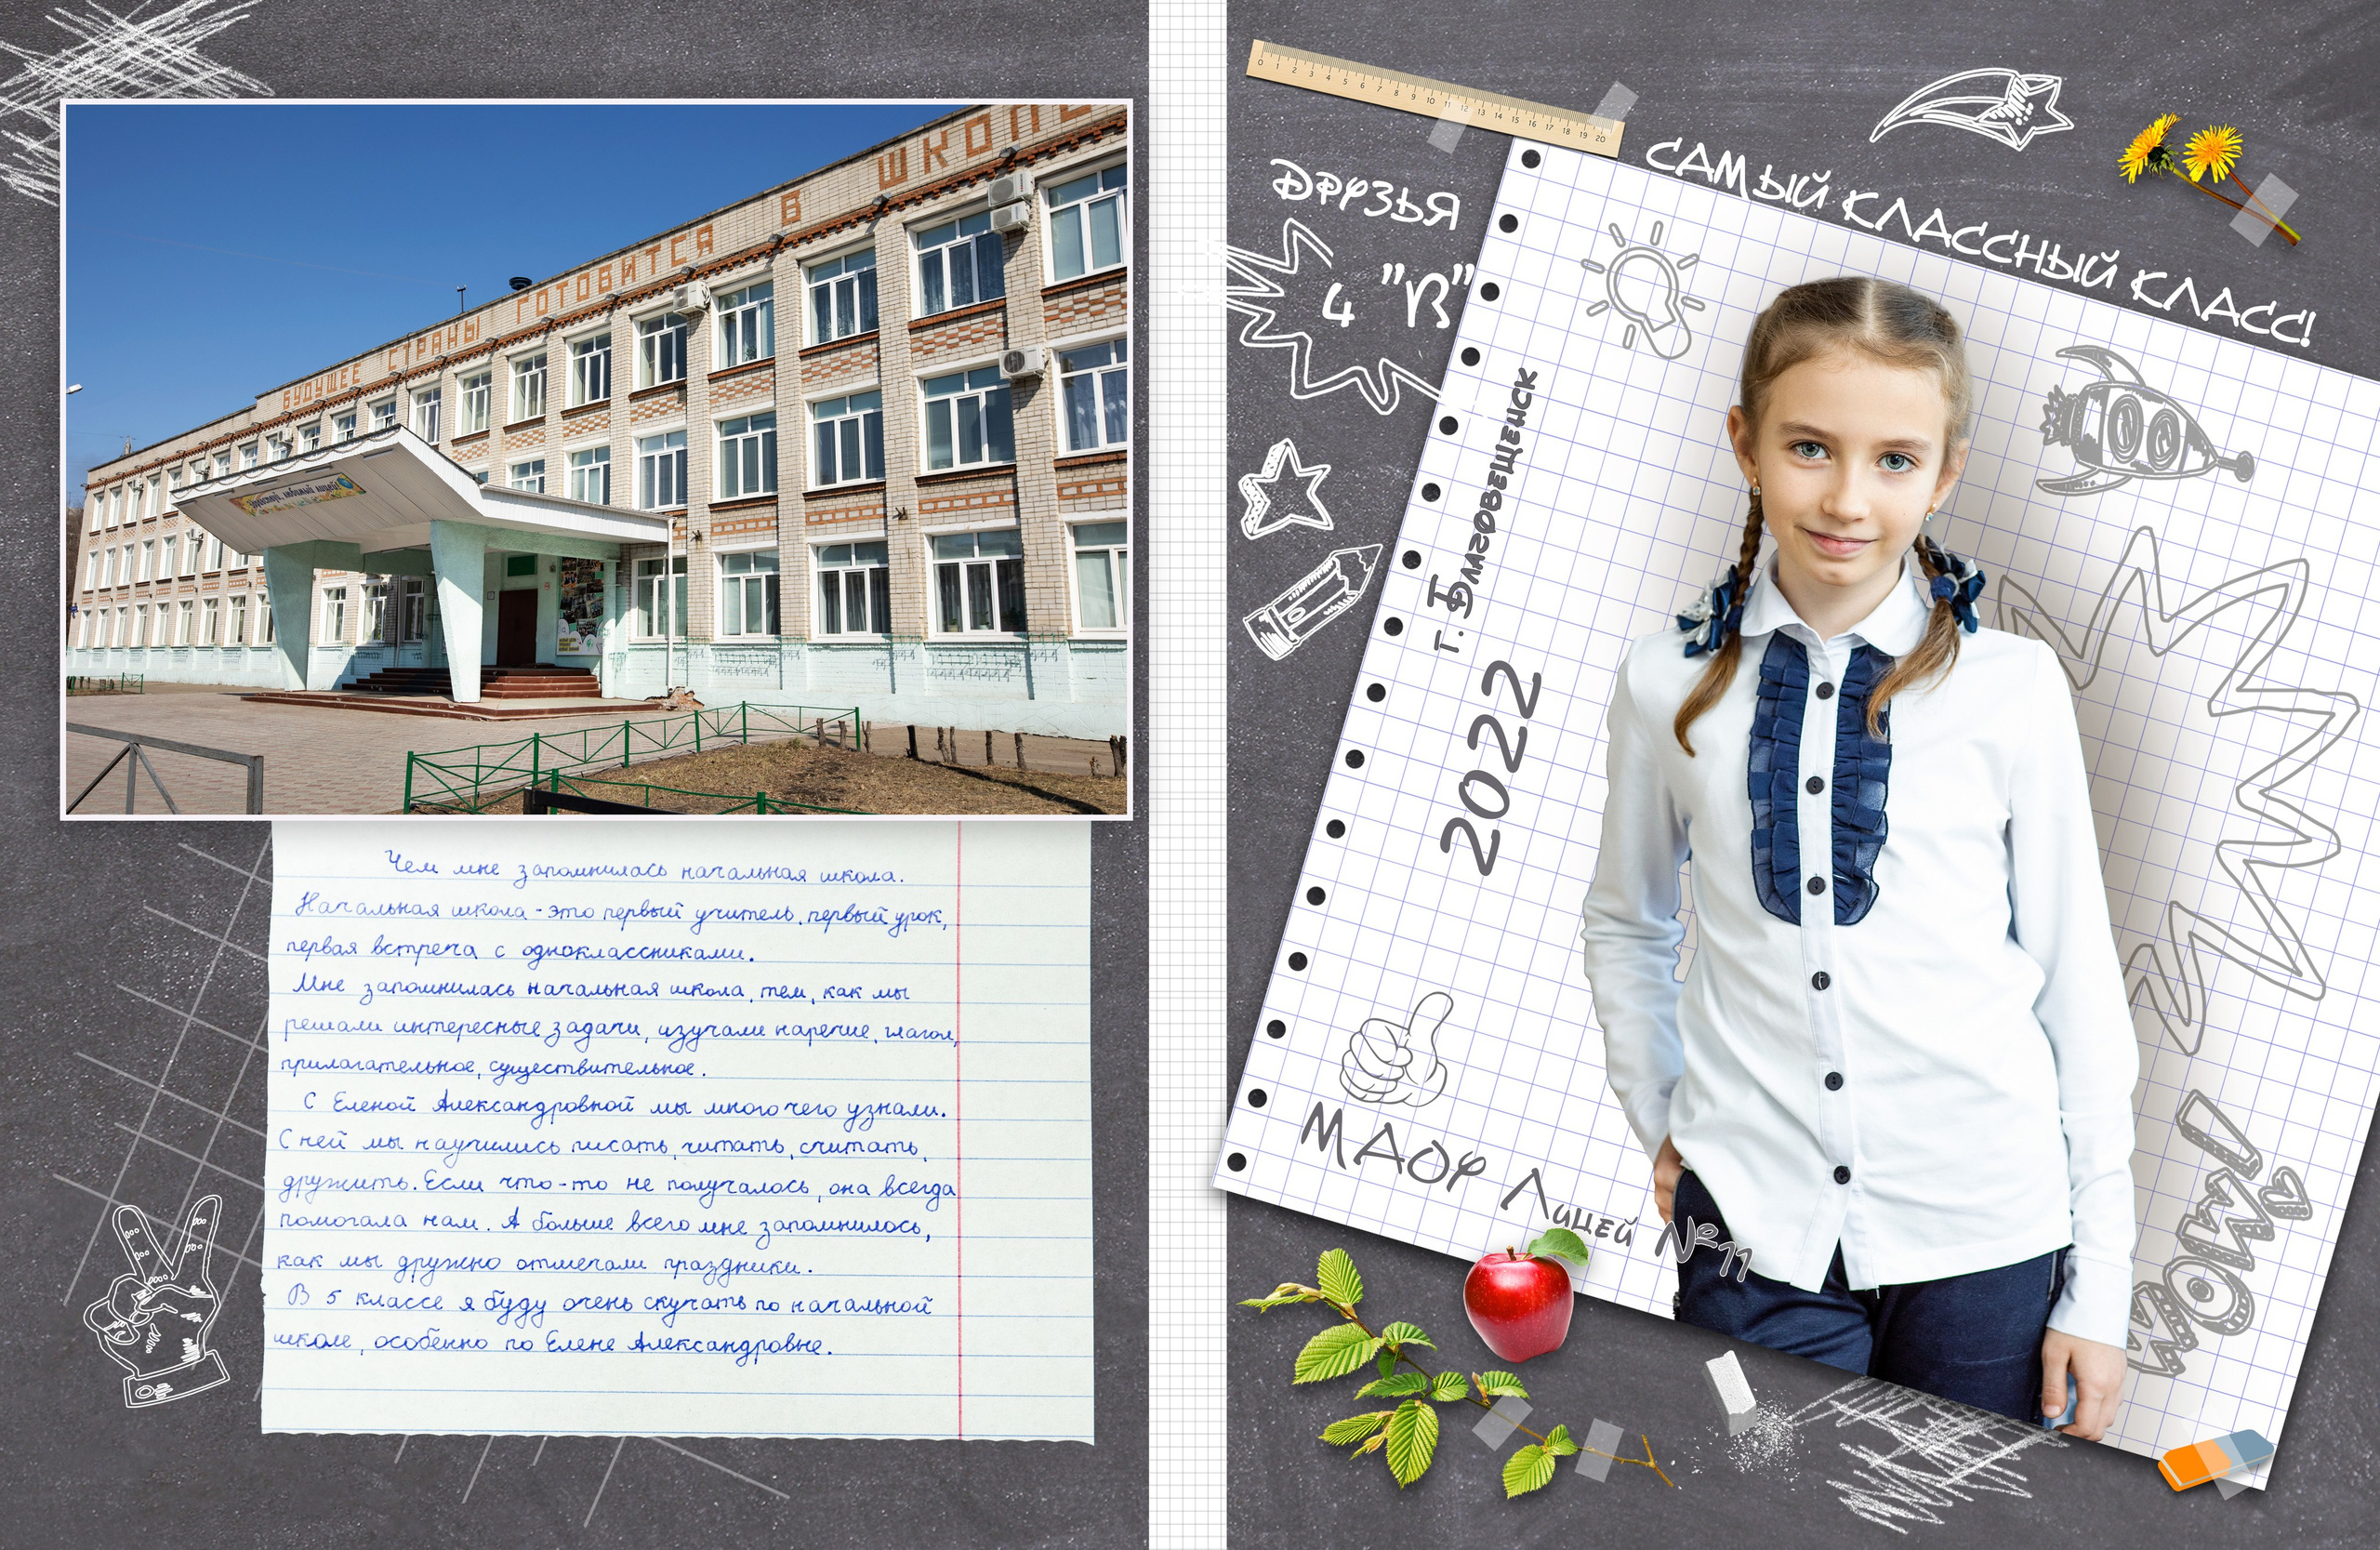 БУДУЩЕЕ СТРАНЫ ГОТОВИТСЯ В ШКОЛЕ
любимый лицей!
Чем мне запомнилась начальная школа.
Начальная школа - это первый учитель, первый урок,
первая встреча с одноклассниками.
Мне запомнилась начальная школа, тем, как мы
решали интересные задачи, изучали наречие, глагол,
прилагательное, существительное.
С Еленой Александровной мы много чего узнали.
С ней мы научились писать, читать, считать,
дружить. Если что-то не получалось, она всегда
помогала нам. А больше всего мне запомнилось,
как мы дружно отмечали праздники.
В 5 классе я буду очень скучать по начальной
школе, особенно по Елене Александровне.
0 1 2 3 4 5 6 7 8 9 10 11 12 13 14 15 16 17 18 19 20
САМЫЙ КЛАССНЫЙ КЛАСС!
ДРУЗЬЯ
4 "В"
г. Благовещенск
2022
МАОУ Лицей №11
WOW!